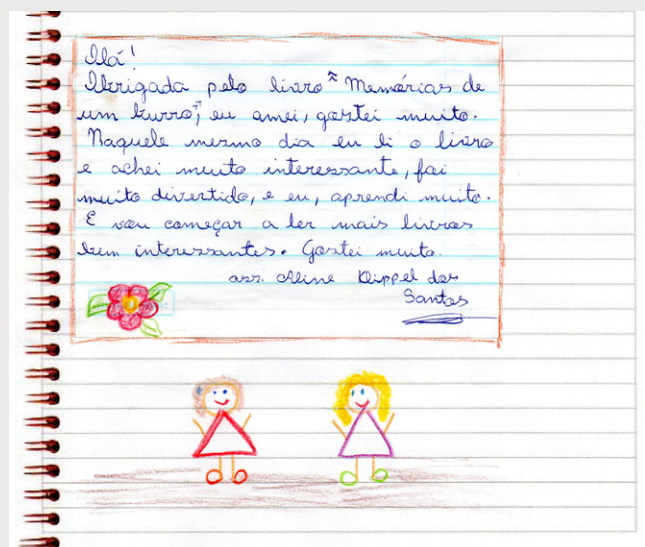 Olá!
Obrigada pelo livro "Memórias de
um burro", eu amei, gostei muito.
Naquele mesmo dia eu li o livro
e achei muito interessante, foi
muito divertido, e eu, aprendi muito.
E vou começar a ler mais livros
bem interessantes. Gostei muito.
ass. Aline Klippel dos
Santos